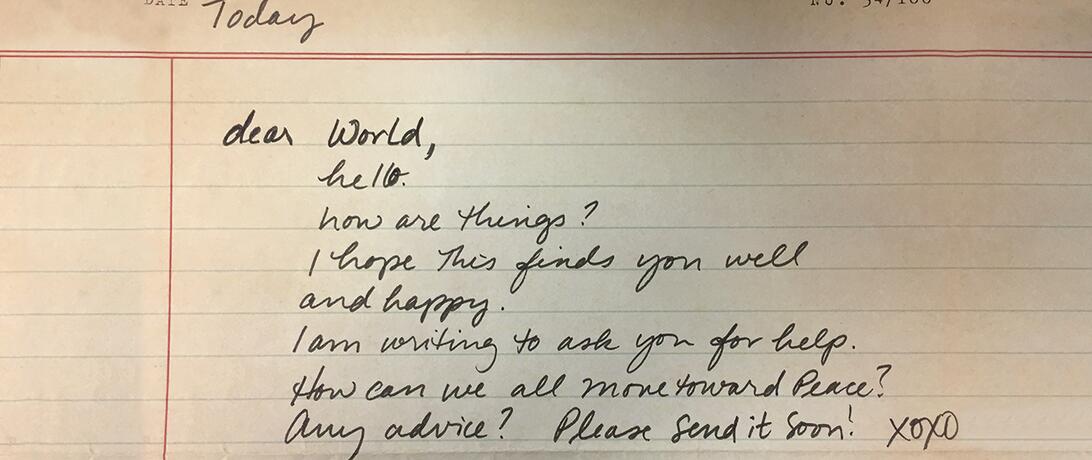 DATE Today
dear World,
hello.
how are things?
I hope this finds you well
and happy.
I am writing to ask you for help.
How can we all move toward Peace?
Any advice? Please send it soon! xoxo